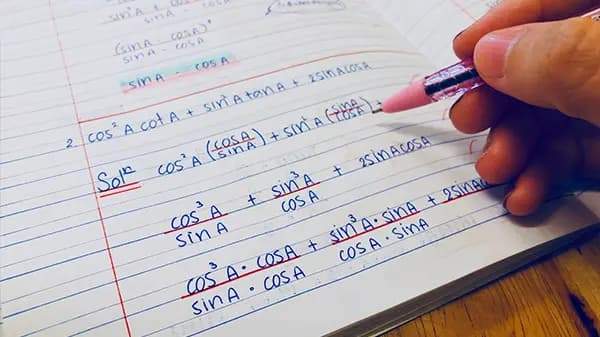 sin A · cos A
(sinA · cosA)²
sinA - cosA
sinA · cosA
2 cos²A cotA + sin²A tanA + 2sinA cosA
Solⁿ cos²A (cosA/sinA) + sin²A (sinA/cosA) +
cos³A/sinA + sin³A/cosA + 2sinA cosA
cos³A · cosA/sinA · cosA + sin³A · sinA/cosA · sinA + 2sinA